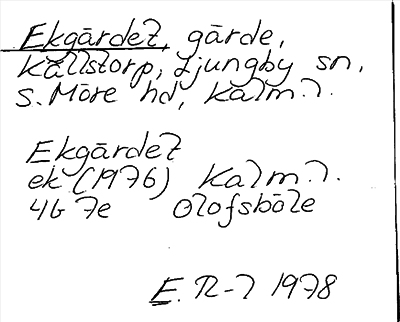 Ekgärdet, gärde,
Källstorp, Ljungby sn,
S. Möre hd, Kalm. l.
Ekgärdet
ek (1976) Kalm. l.
4G 7e Olofsbole
E. R-l 1978